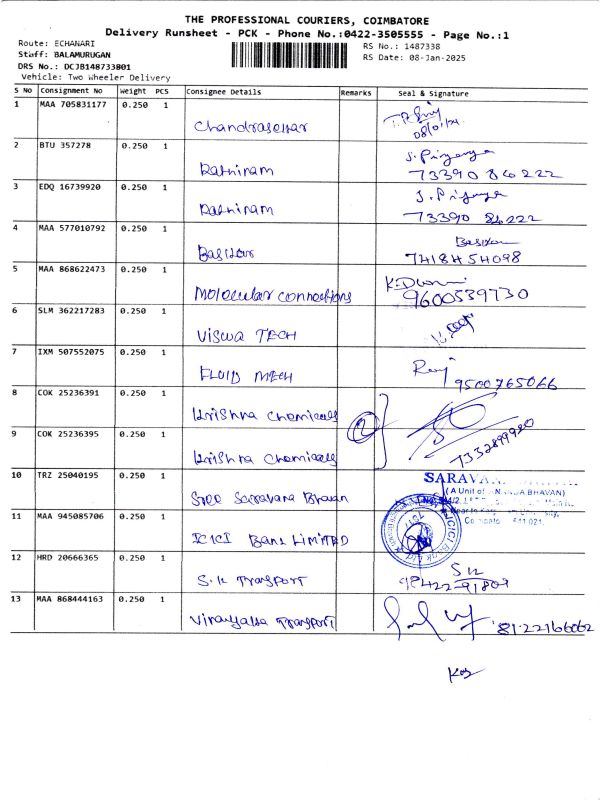 THE PROFESSIONAL COURIERS, COIMBATORE
Delivery Runsheet - PCK - Phone No.:0422-3505555 - Page No.:1
Route: ECHANARI
Staff: BALAMURUGAN
DRS No.: DCJB148733801
Vehicle: Two Wheeler Delivery
RS No.: 1487338
RS Date: 08-Jan-2025
S No Consignment No Weight PCS Consignee Details Remarks Seal & Signature
1 MAA 705831177 0.250 1
2 BTU 357278 0.250 1 Rathinam S. Priyanga
73390 86222
3 EDQ 16739920 0.250 1 Rathinam S. Priyanga
73390 86222
4 MAA 577010792 0.250 1 Baskar
7418454098
5 MAA 868622473 0.250 1 Molecular connections
9600539730
6 SLM 362217283 0.250 1 Viswa TECH
7 IXM 507552075 0.250 1 FLUID MECH
9500765066
8 COK 25236391 0.250 1 Krishna chemicals 2
7332899920
9 COK 25236395 0.250 1 Krishna chemicals
10 TRZ 25040195 0.250 1 Sree Saravana Bhavan
SARAVAN
11 MAA 945085706 0.250 1 ICICI Bank LIMITED
12 HRD 20666365 0.250 1 S.K Transport SK
98422-91809
13 MAA 868444163 0.250 1 Vinayaka Transport 8122166062